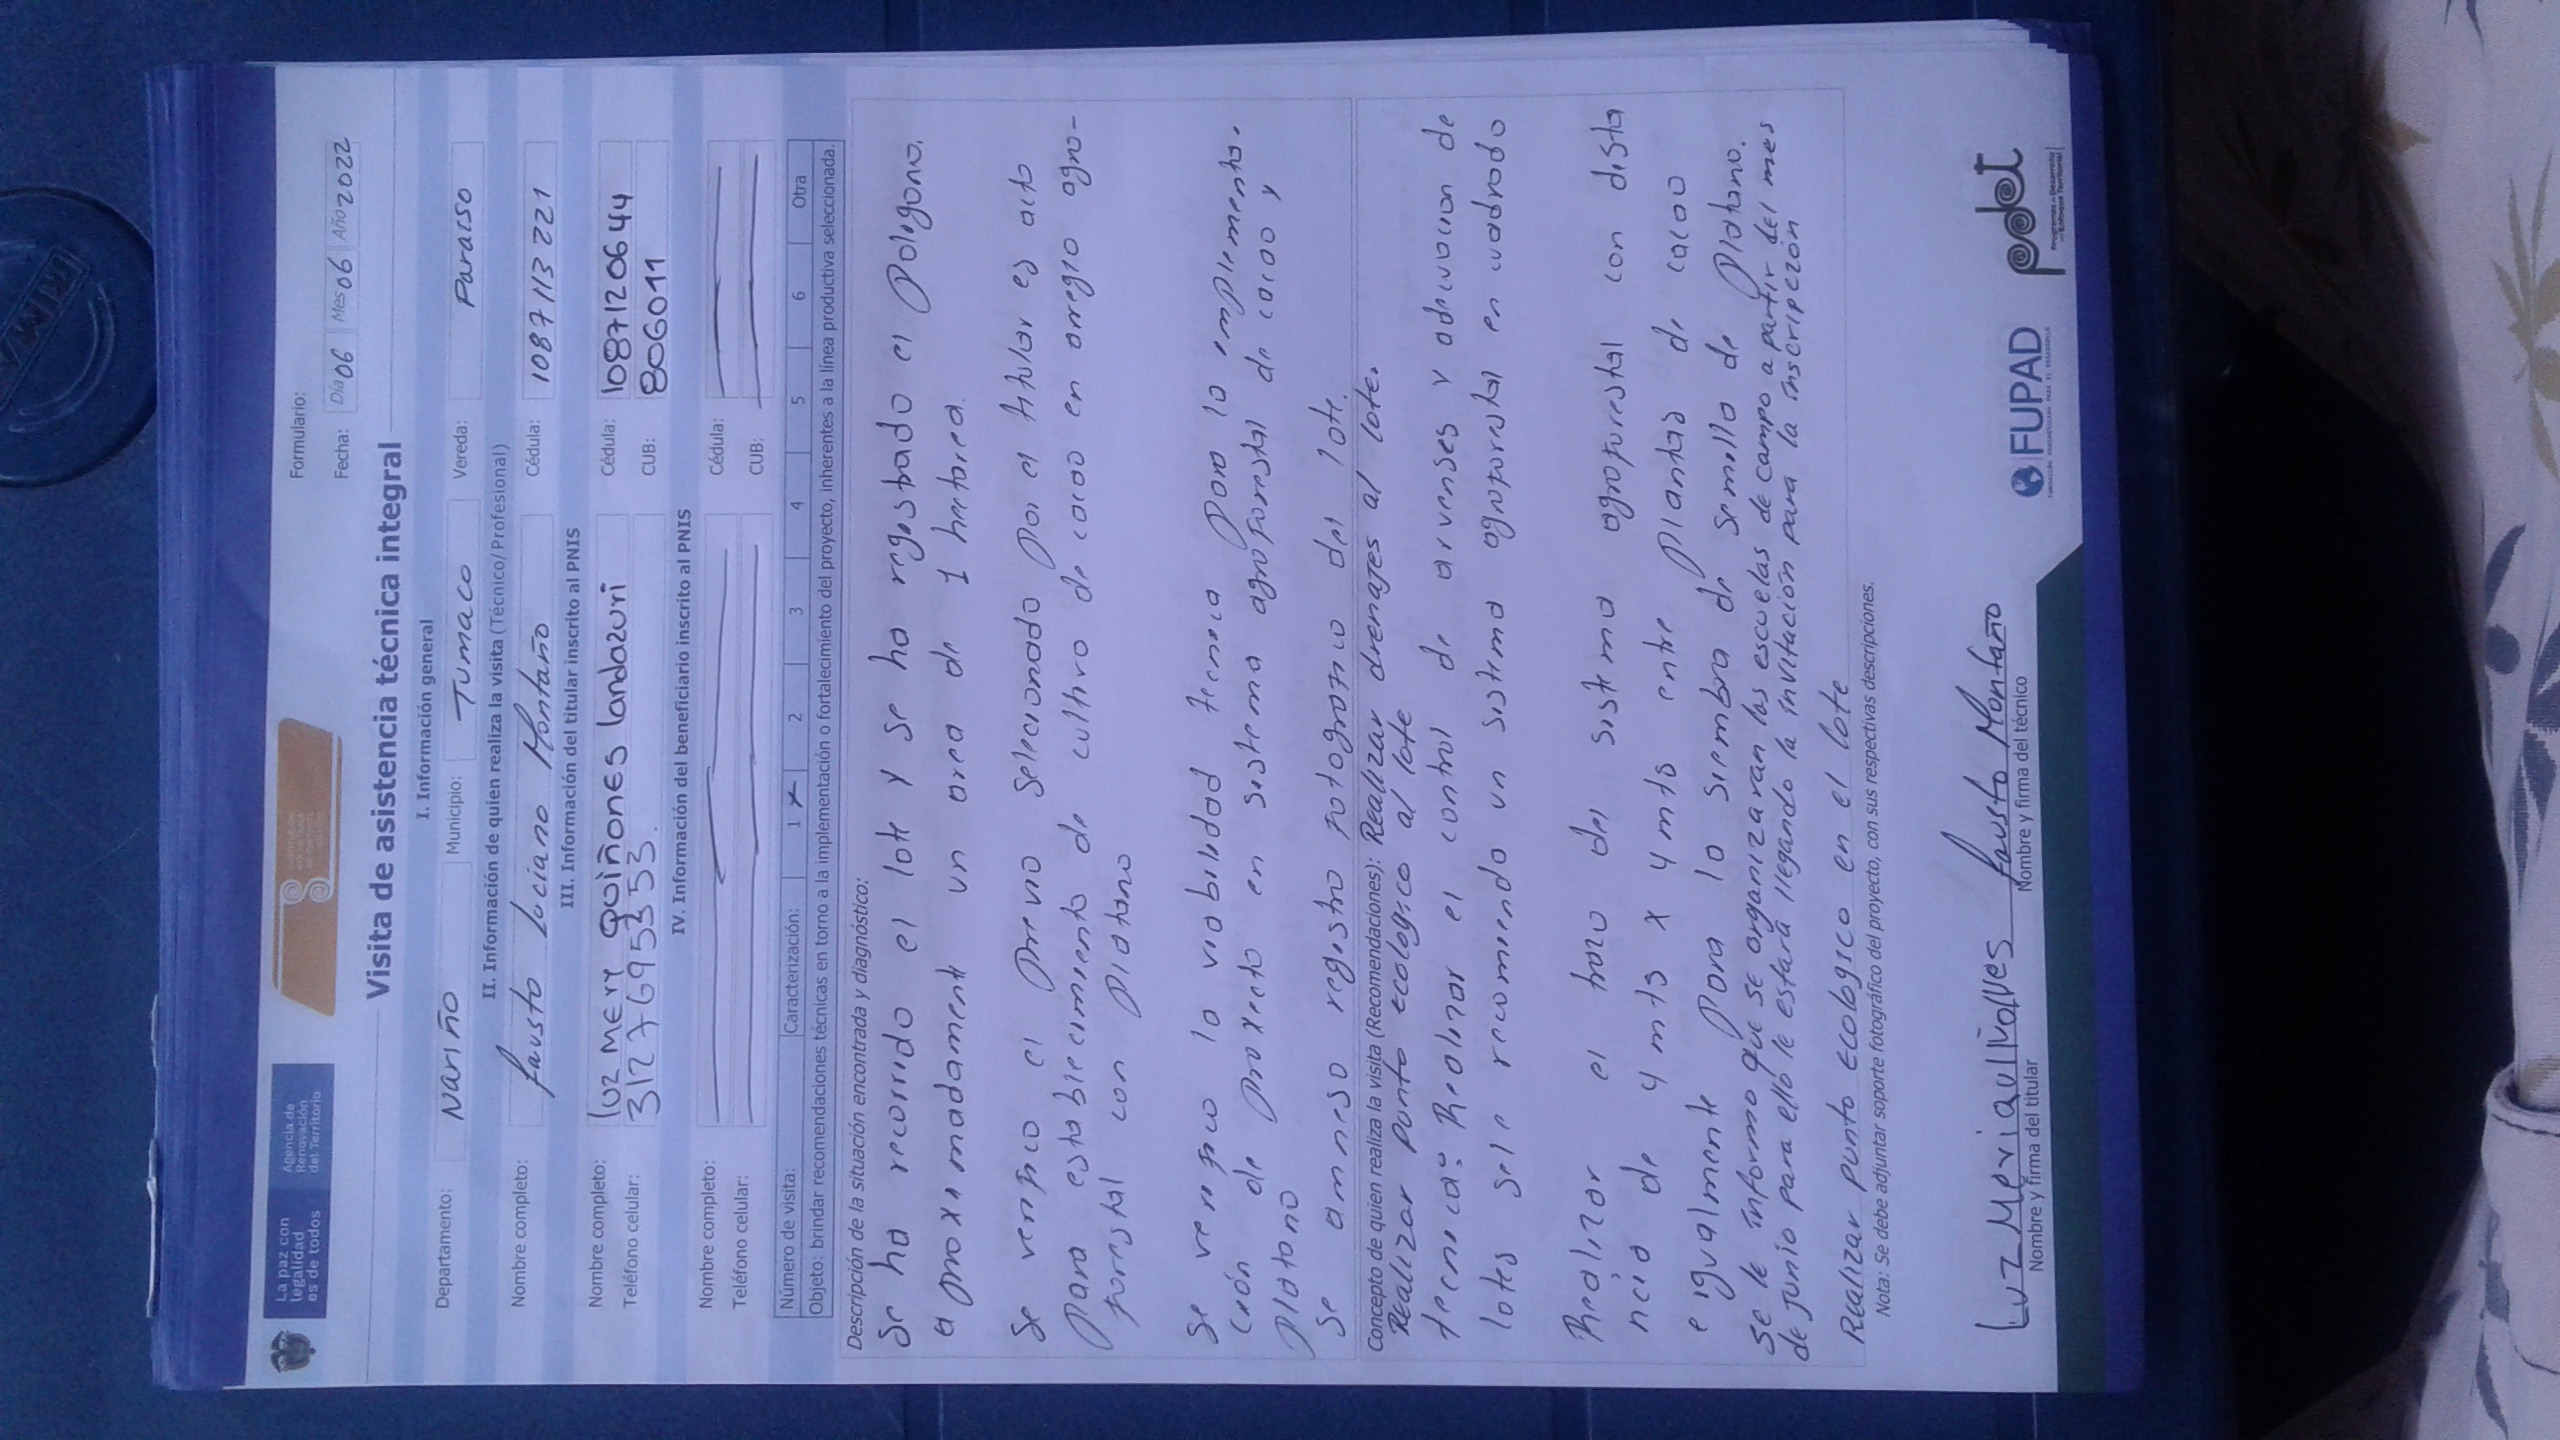 La paz con
legalidad
es de todos
Agencia de
Renovación
del Territorio
Formulario:
Fecha: Día 06 Mes 06 Año 2022
Visita de asistencia técnica integral
I. Información general
Departamento: Nariño Municipio: Tumaco Vereda: Paraiso
II. Información de quien realiza la visita (Técnico/Profesional)
Nombre completo: fausto Luciano Montaño Cédula: 1087113221
III. Información del titular inscrito al PNIS
Nombre completo: luz Mery Quiñones landazuri Cédula: 1087120644
Teléfono celular: 3127695353. CUB: 806011
IV. Información del beneficiario inscrito al PNIS
Nombre completo: Cédula:
Teléfono celular: CUB:
Número de visita: Caracterización: 1 x 2 3 4 5 6 Otra
Objeto: brindar recomendaciones técnicas en torno a la implementación o fortalecimiento del proyecto, inherentes a la línea productiva seleccionada.
Descripción de la situación encontrada y diagnóstico:
Se ha recorrido el lote y se ha registrado el Poligono.
aproximadamente un area de 1 hectarea.
Se verifico el previo seleccionado por el titular es acto
para establecimiento de cultivo de cacao en arreglo agro-
forestal con platano
Se verifico la viabilidad tecnica para la implementa.
ción de proyecto en sistema agroforestal de cacao y
platano
Se anneso registro fotografico del lote.
Concepto de quien realiza la visita (Recomendaciones): Realizar drenajes al lote.
Realizar punto ecologico al lote
tecnica: Realizar el control de arvenses y adecuacion de
lotes se le recomienda un sistema agroforestal en cuadrado
Realizar el trazo del sistema agroforestal con dista
ncia de 4 mts x 4 mts entre plantas de cacao
e igualmente para la siembra de semilla de platano.
Se le informo que se organizaran las escuelas de campo a partir del mes
de junio para ello le estará llegando la invitación para la inscripción
Realizar punto Ecologico en el lote
Nota: Se debe adjuntar soporte fotográfico del proyecto, con sus respectivas descripciones.
Luz Meri
Nombre y firma del titular
fausto Montaño
Nombre y firma del técnico
FUPAD
pdet
Programas de Desarrollo
con Enfoque Territorial